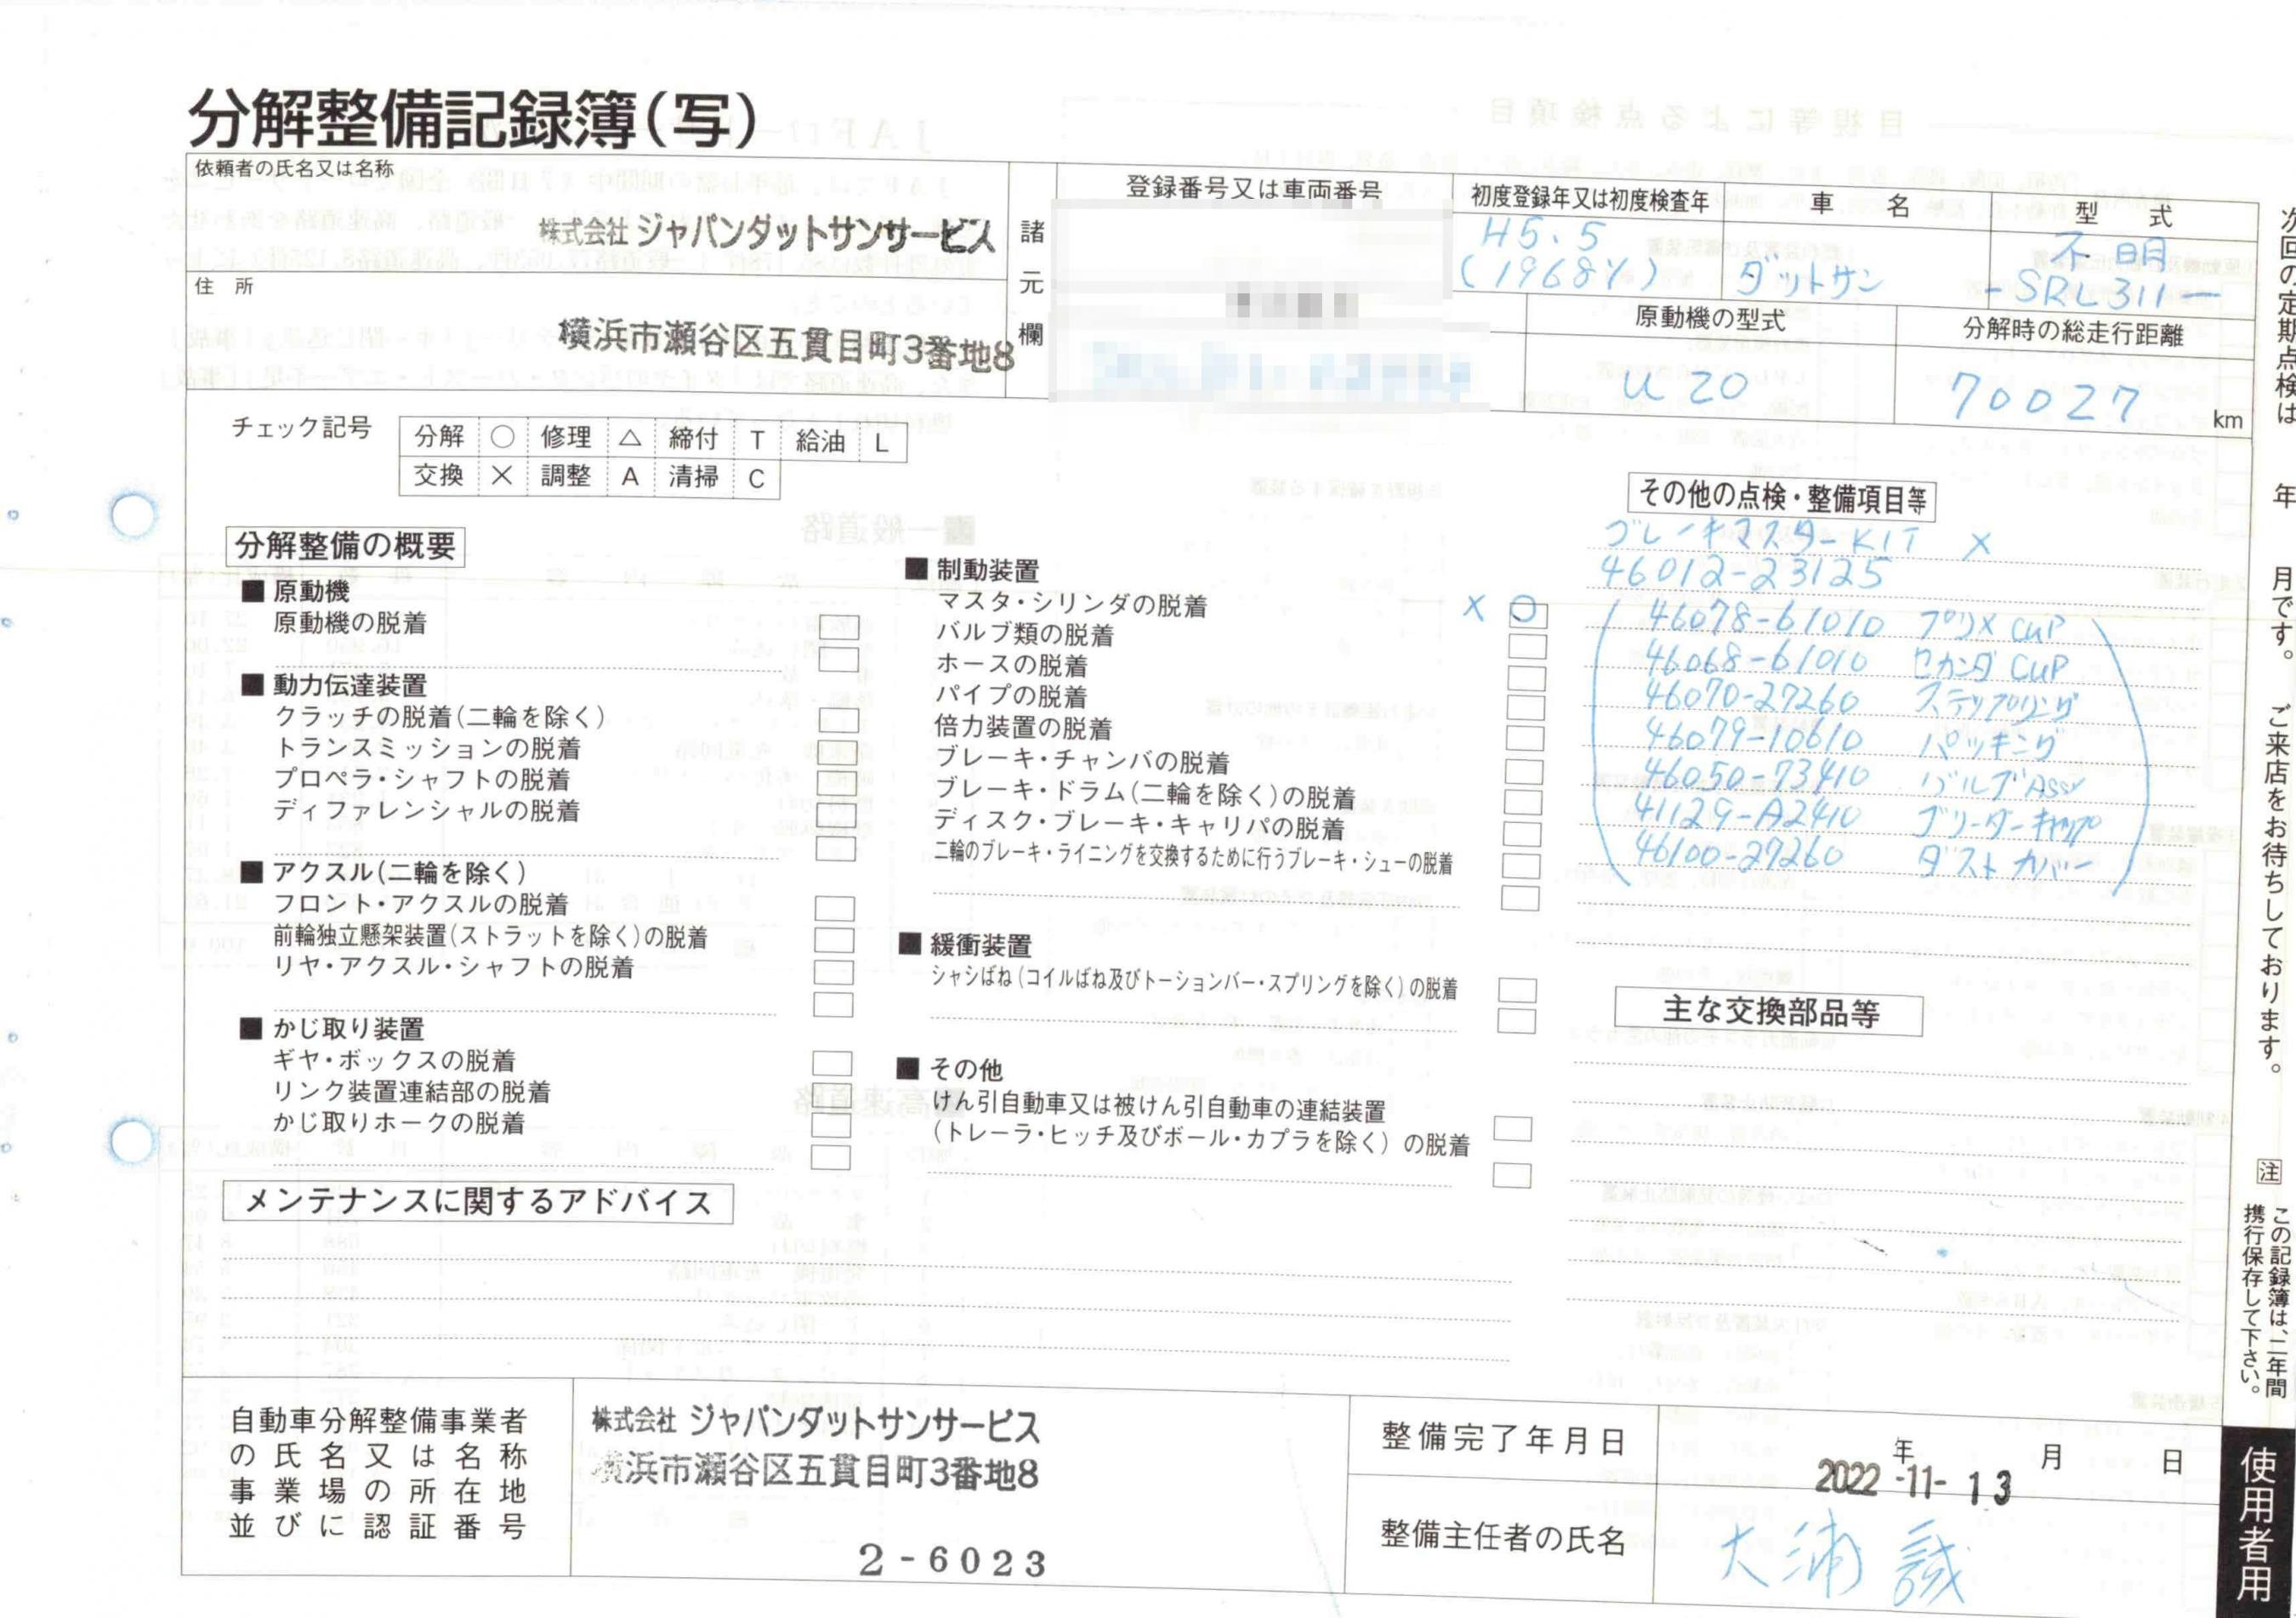 分解整備記録簿(写)
依頼者の氏名又は名称
株式会社 ジャパンダットサンサービス
住 所
横浜市瀬谷区五貫目町3番地8
諸元欄
登録番号又は車両番号
初度登録年又は初度検査年
H5.5
(1968Y)
車 名
ダットサン
型 式
不明
-SRL311-
原動機の型式
U20
分解時の総走行距離
70027 km
チェック記号
分解 ○ 修理 △ 締付 T 給油 L
交換 × 調整 A 清掃 C
分解整備の概要
■ 原動機
原動機の脱着
■ 動力伝達装置
クラッチの脱着(二輪を除く)
トランスミッションの脱着
プロペラ・シャフトの脱着
ディファレンシャルの脱着
■ アクスル(二輪を除く)
フロント・アクスルの脱着
前輪独立懸架装置(ストラットを除く)の脱着
リヤ・アクスル・シャフトの脱着
■ かじ取り装置
ギヤ・ボックスの脱着
リンク装置連結部の脱着
かじ取りホークの脱着
■ 制動装置
マスタ・シリンダの脱着 × ○
バルブ類の脱着
ホースの脱着
パイプの脱着
倍力装置の脱着
ブレーキ・チャンバの脱着
ブレーキ・ドラム(二輪を除く)の脱着
ディスク・ブレーキ・キャリパの脱着
二輪のブレーキ・ライニングを交換するために行うブレーキ・シューの脱着
■ 緩衝装置
シャシばね(コイルばね及びトーションバー・スプリングを除く)の脱着
■ その他
けん引自動車又は被けん引自動車の連結装置
(トレーラ・ヒッチ及びボール・カプラを除く)の脱着
その他の点検・整備項目等
ブレーキマスターKIT ×
46012-23125
46078-61010 プリメCUP
46068-61010 セカンダCUP
46070-27260 ステップリング
46079-10610 パッキング
46050-73410 バルブASSY
41129-A2410 ブリーダーキャップ
46100-27260 ダストカバー
主な交換部品等
メンテナンスに関するアドバイス
自動車分解整備事業者
の氏名又は名称
事業場の所在地
並びに認証番号
株式会社 ジャパンダットサンサービス
横浜市瀬谷区五貫目町3番地8
2-6023
整備完了年月日
年 月 日
2022-11-13
整備主任者の氏名
大浦 誠
次回の定期点検は 年 月です。 ご来店をお待ちしております。
注 この記録簿は、二年間
携行保存して下さい。
使用者用